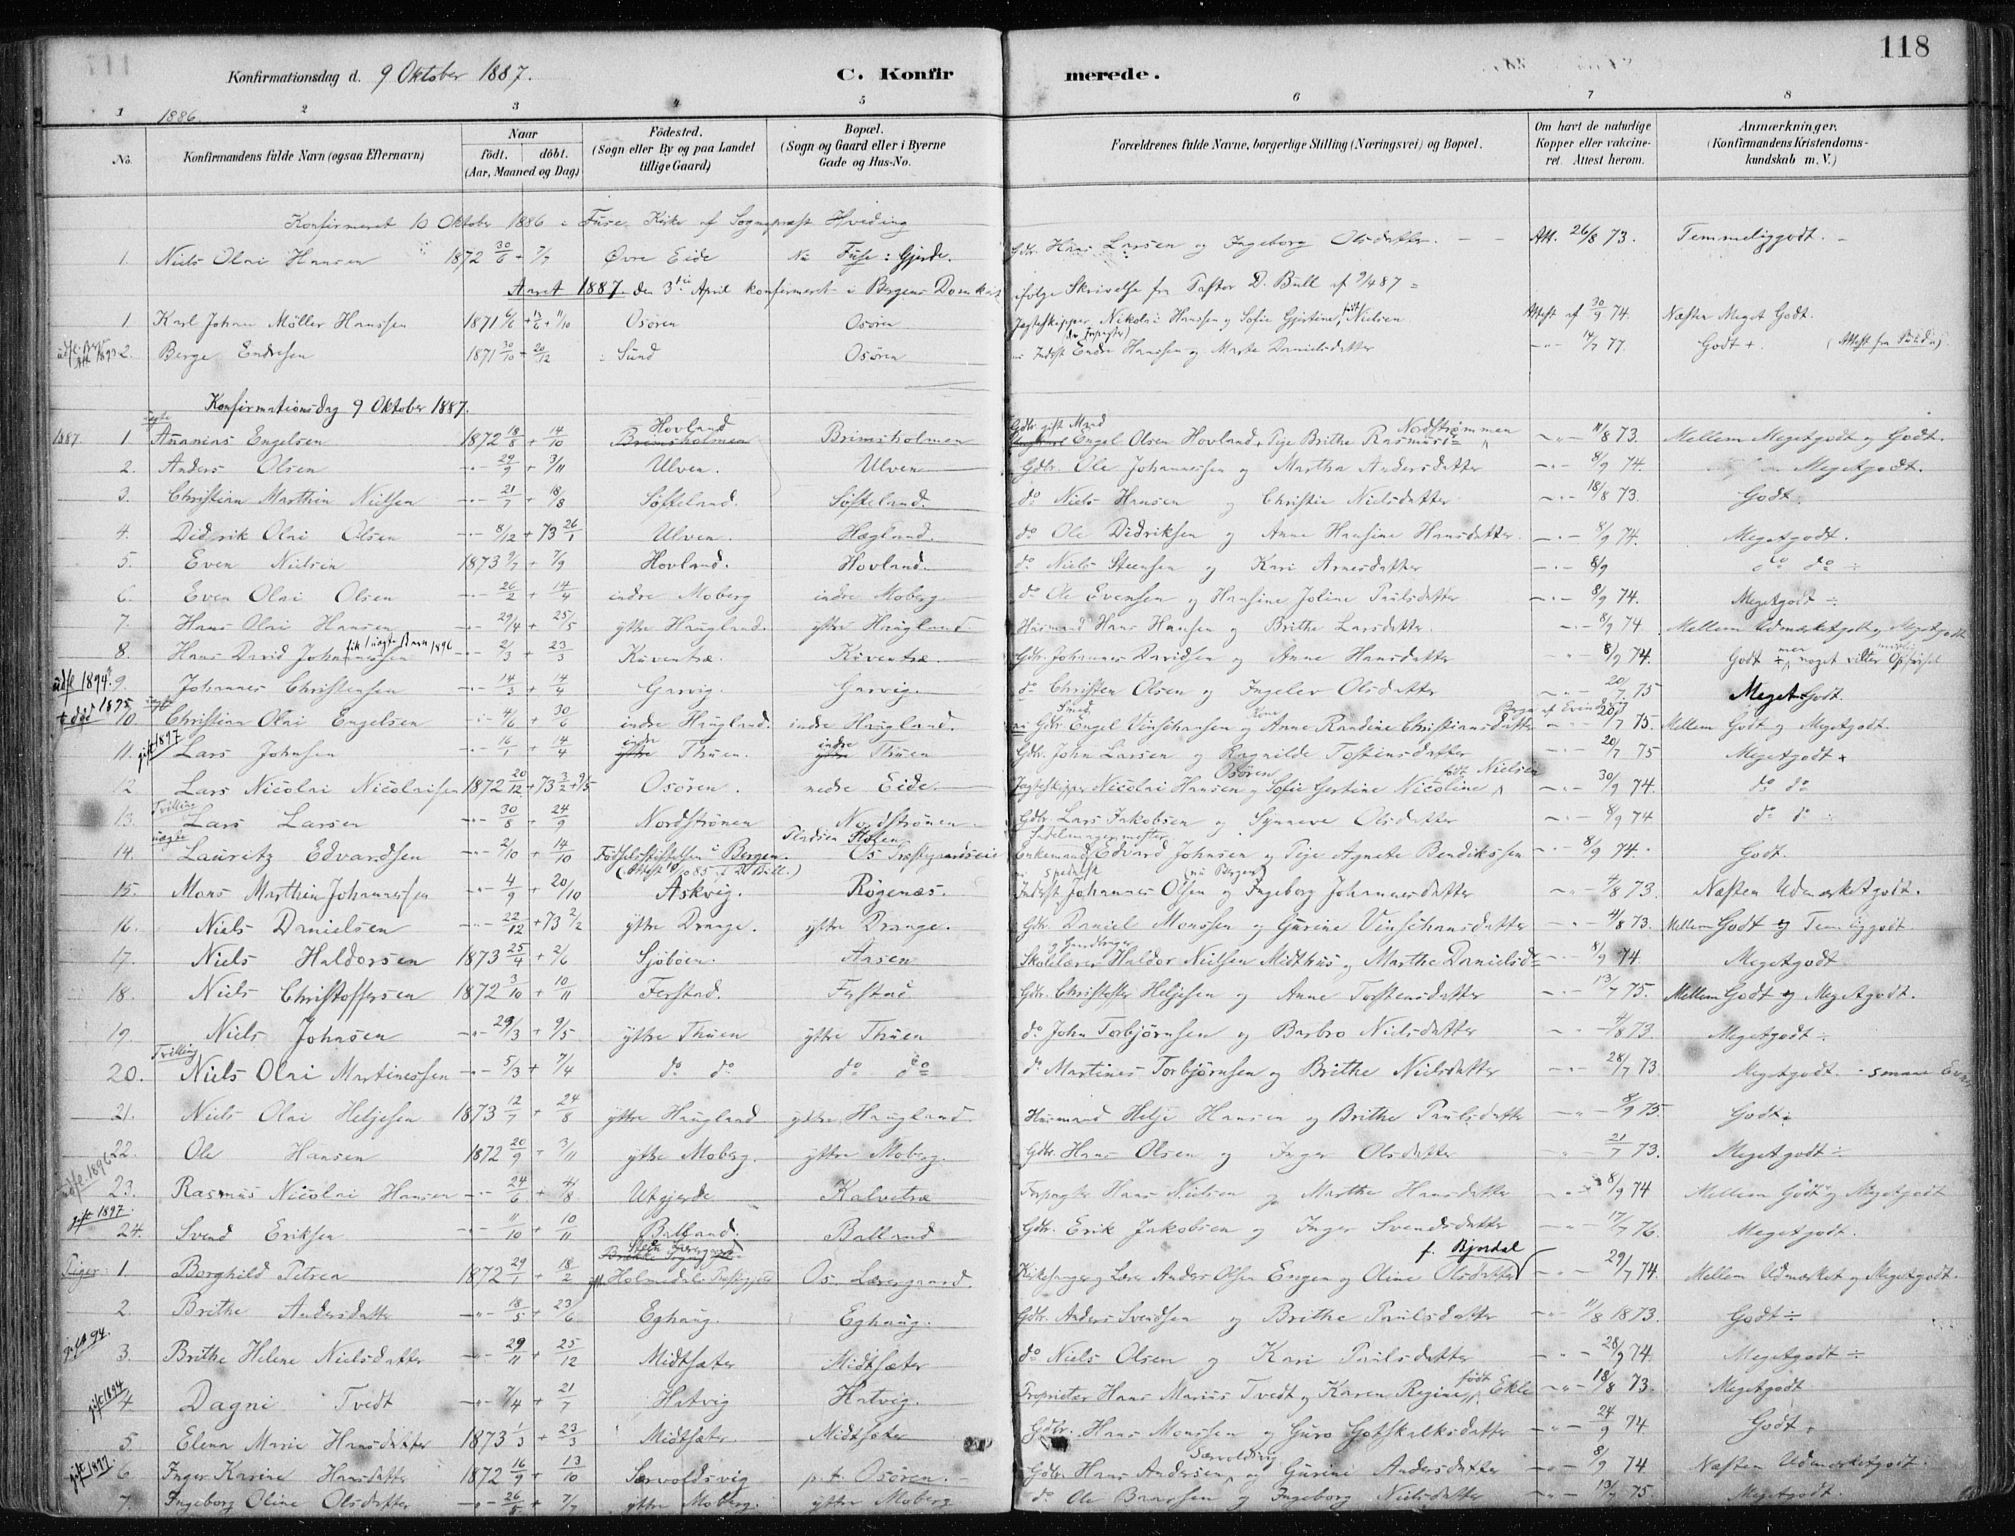 118
Konfirmationsdag d. 9 Oktober 1887. C. Konfirmerede.
1 2 3 4 5 6 7 8
1886.
No. Konfirmandens fulde Navn (ogsaa Efternavn) Naar født. døbt. (Aar, Maaned og Dag) Fødested. (Sogn eller By og paa Landet tillige Gaard) Bopæl. (Sogn og Gaard eller i Byerne Gade og Hus-No. Forældrenes fulde Navne, borgerlige Stilling (Næringsvei) og Bopæl. Om havt de naturlige Kopper eller vakcineret. Attest herom. Anmærkninger. (Konfirmandens Kristendomskundskab m. V.)
Konfirmeret 10 Oktober 1886 i Fuse Kirke af Sognepræst Hveding
1. Niels Olai Hansen 1872 30/6 + 7/7 Øvre Eide Nu Fuse: Gjerde. Gdbr. Hans Larsen og Ingeborg Olsdatter. Att. 26/8 73. Temmeliggodt.
Aaret 1887. den 3die April konfirmeret i Bergens Domkirke ifølge Skrivelse fra Pastor D. Bull af 9/4 87
1 Karl Johan Möller Hanssen 1871 6/6 Osören Osören Jagteskipper Nikolai Hanssen og Sofie Gjertine, født Nielsen Attest af 30/9 74. Næsten Meget Godt.
2. Berge Endresen 1871 30/10 + 20/12 Sund Osören Inderst Endre Hanssen og Marte Danielsdatter 14/7 77. Godt +
Konfirmationsdag 9 Oktober 1887.
1887. 1 uægte Ananias Engelsen 1872 18/8 + 14/10 Hovland Brimsholmen Brimsholmen Gdbr. gift Mand Engel Olsen Hovland, Pige Brithe Rasmusd. Nordstrømmen 11/8 73. Mellem Megetgodt og Godt.
2. Anders Olsen 29/9 + 3/11 Ulven. Ulven Gdbr. Ole Johannessen og Martha Andersdatter 8/9 74. Megetgodt.
3. Christian Marthin Nielsen 21/7 + 18/8 Søfteland. Søfteland. do Niels Hansen og Christie Nielsdatter 18/8 73. Godt.
4. Didrik Olai Olsen 8/12 + 73 26/1 Ulven. Hægland. do Ole Didriksen og Anne Hansine Hansdatter. 8/9 74. Megetgodt.
5. Even Nielsen 1873 9/7 + 7/9 Hovland. Hovland. do Niels Steensen og Kari Arnesdatter 8/9 do do
6. Even Olai Olsen 26/2 + 14/4 indre Moberg indre Moberg. do Ole Evensen og Hansine Joline Paulsdatter. 8/9 74. Megetgodt ÷
7. Hans Olai Hansen 29/4 + 25/5 ytre Haugland. ytre Haugland Husmand Hans Hansen og Brithe Larsdatter. 8/9 74. Mellem Udmærketgodt og Megetgodt
8. Hans David Johannessen fik 1 uægte Barn 1896 2/3 + 23/3 Kuventræ. Kuventræ. Gdbr. Johannes Davidsen og Anne Hansdatter 8/9 74. Godt +, men noget vilter Opførsel
udfl. 1894. 9. Johannes Christensen 14/3 + 14/4 Garvig. Garvig. do Christen Olsen og Ingelev Olsdatter 20/7 75 MegetGodt.
+ død 1895 10. uægte Christian Olai Engelsen 4/6 + 30/6 indre Haugland. indre Haugland. Gdbr. Engel Vinschansen og Kone Anne Randine Christiansdatter 20/7 75. Mellem Godt og Megetgodt.
gift 1897 11. Lars Johnsen 16/1 + 14/4 indre Thuen. indre Thuen Gdbr. John Larsen og Ragnilde Tostensdatter 20/7 75 Megetgodt +
12 Lars Nicolai Nicolaisen 1872 20/12 + 73 3/2 + 9/5 Osören. nedre Eide. Jagteskipper Nicolai Hansen Osören og Sofie Gertine Nicoline født Nielsen 30/9 74. do do
13. Tvilling Lars Larsen 30/8 + 24/9 Nordstrønen Nordstrønen Gdbr. Lars Jakobsen og Synneve Olsdatter 8/9 74 do do
14. uægte Lauritz Edvardsen 2/10 + 14/10 Fødselsstiftelsen i Bergen. Pladsen Fløten Os Præstegaardseie Sadelmagermester Enkemand Edvard Johnsen og Pige Agnete Bendiksen 8/9 74. Godt.
15. Mons Marthin Johannessen 4/9 + 20/10 Askvig. Røgenæs. Inderst Johannes Olsen (nu Bergen) og Ingeborg Johannesdatter 4/8 73. Næsten Udmærketgodt.
16. Niels Danielsen 22/12 + 73 2/2 ytre Drange. ytre Drange. Gdbr. Daniel Monssen og Gurine Vinschansdatter 4/8 73. Mellem Godt og Tem.liggodt
17. Niels Haldorsen 1873 25/4 + 2/6 Sjøbøen. Aasen Skolelærer og Handlinger Haldor Nielsen Midthus og Marthe Danielsd. 8/9 74. Megetgodt.
18. Niels Christoffersen 1872 3/10 + 10/11 Ferstad. Ferstad Gdbr. Christoffer Heljesen og Anne Torstensdatter 13/7 75. Mellem Godt og Megetgodt.
19. Niels Johnsen 29/3 + 9/5 ytre Thuen ytre Thuen do John Torbjørnsen og Barbro Nielsdatter 4/8 73. Megetgodt ÷
20. Tvilling Niels Olai Martinessen 5/3 + 7/4 do do do do do Martines Torbjørnsen og Brithe Nielsdatter 28/7 73. Megetgodt. - smaae Evner
21. Niels Olai Heljesen 1873 12/7 + 24/8 ytre Haugland ytre Haugland. Husmand Helje Hansen og Brithe Paulsdatter 8/9 75. Godt.
22. Ole Hansen 1872 20/9 + 3/11 ytre Moberg. ytre Moberg. Gdbr. Hans Olsen og Inger Olsdatter 21/7 73. Megetgodt ÷
udfl. 1896 23. Rasmus Nicolai Hansen 24/6 + 4/8 Utgjerde Kalvetræ Forpagter Hans Nielsen og Marthe Hansdatter 8/9 74 Mellem Godt og Megetgodt
gift 1897. 24. Svend Eriksen 11/10 + 10/11 Balland. Balland Gdbr. Erik Jakobsen og Inger Svendsdatter 17/7 76. Megetgodt.
Piger: 1. Borghild Petrea 1872 29/1 + 18/2 Holmedals Præstegjeld Os. Læregaard. Kirkesanger og Lærer Anders Olsen Engen og Oline Olsdatter f. Bjordal 29/7 74. Mellem Udmærket og Megetgodt.
2. Brithe Andersdatter 18/5 + 23/6 Eghaug. Eghaug. Gdbr. Anders Svendsen og Brithe Paulsdatter 11/8 1873. Godt ÷
gift 94. 3. Brithe Helene Nielsdatter 29/11 + 25/12 Midtsæter Midtsæter do Niels Olsen og Kari Paulsdatter 28/9 74. Megetgodt ÷
gift 1894 4. Dagni Tvedt 7/4 + 21/7 Hatvig Hatvig. Proprietær Hans Marius Tvedt og Karen Regine født Ekle 18/8 73. Megetgodt
5. Elena Marie Hansdatter 1873 1/3 + 23/3 Midtsæter Midtsæter Gdbr. Hans Monssen og Guro Gotskalksdatter 24/9 74. Godt +
gift 1897. 6 Inger Karine Hansdatter 1872 16/9 + 13/10 Særvoldsvig p. t. Osören. Gdbr. Hans Andersen Særvoldsvig og Gurine Andersdatter 8/9 74. Næsten Udmærketgodt.
7. Ingeborg Oline Olsdatter 26/5 + 7/7 ytre Moberg. ytre Moberg. do Ole Baarsen og Ingeborg Nielsdatter 13/7 75. Megetgodt.